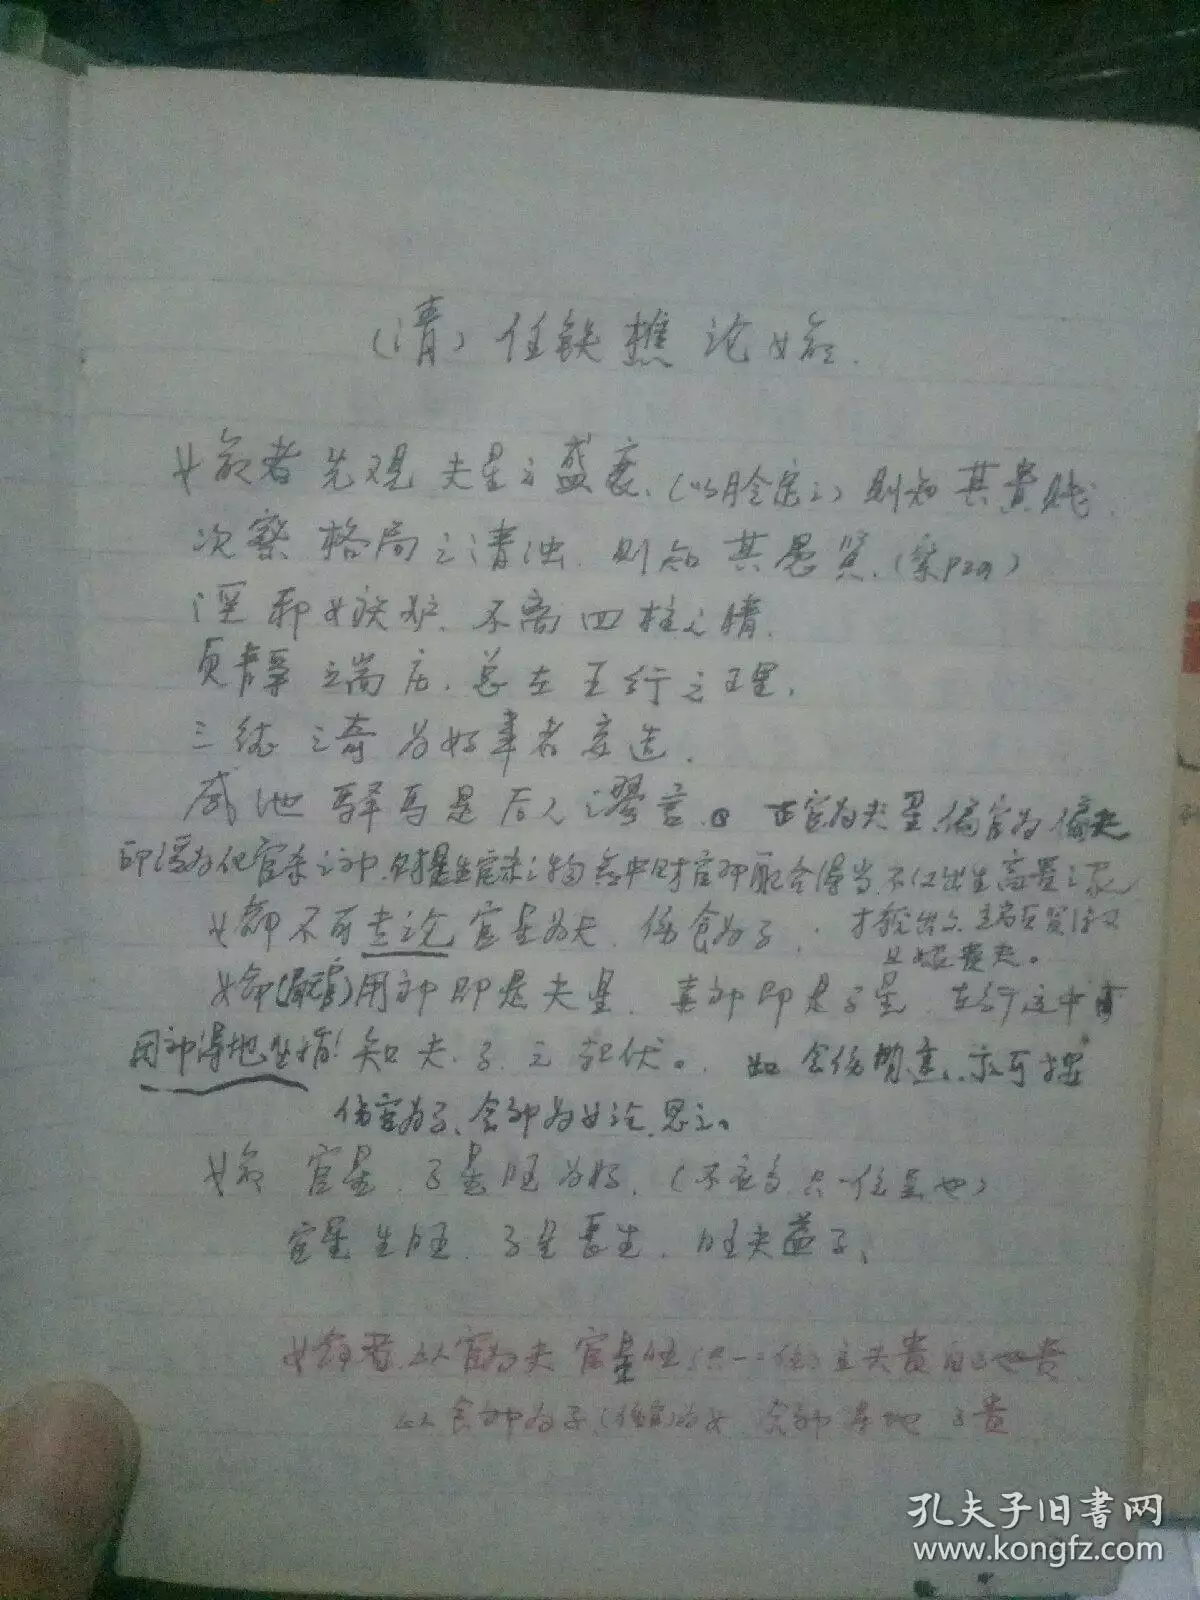 (清)任铁樵论女命.
女命者先观夫星之盛衰、(以月令定之)则知其贵贱.
次察格局之清浊.则知其愚贤、(案P29)
淫邪女嫉妒、不离四柱之情.
贞静端庄.总在五行之理.
三纟之奇为好事者妄造.
咸池驿马是后人谬言. 正官为夫星,偏官为偏夫
印绶为化官杀之神.财星生官杀之物.命中财官印配合得当.不仅出生高贵之家
女命不可专论官星为夫.伤食为子. 才貌出众端贞贤
且嫁贵夫。
女命(最宜)用神即是夫星.喜神即是子星.在行运中有
用神得地生情!知夫.子之起伏。如食伤
伤官为子、食神为女论.思之。
女命官星.子星旺为好.(不宜多只一位是也)
官星生旺.子星长生.旺夫益子、
女命者以官为夫官星旺(只一位)主夫贵自己也贵.
以食神为子(伤官)为女食神得地子贵
孔夫子旧书网
www.kongfz.com